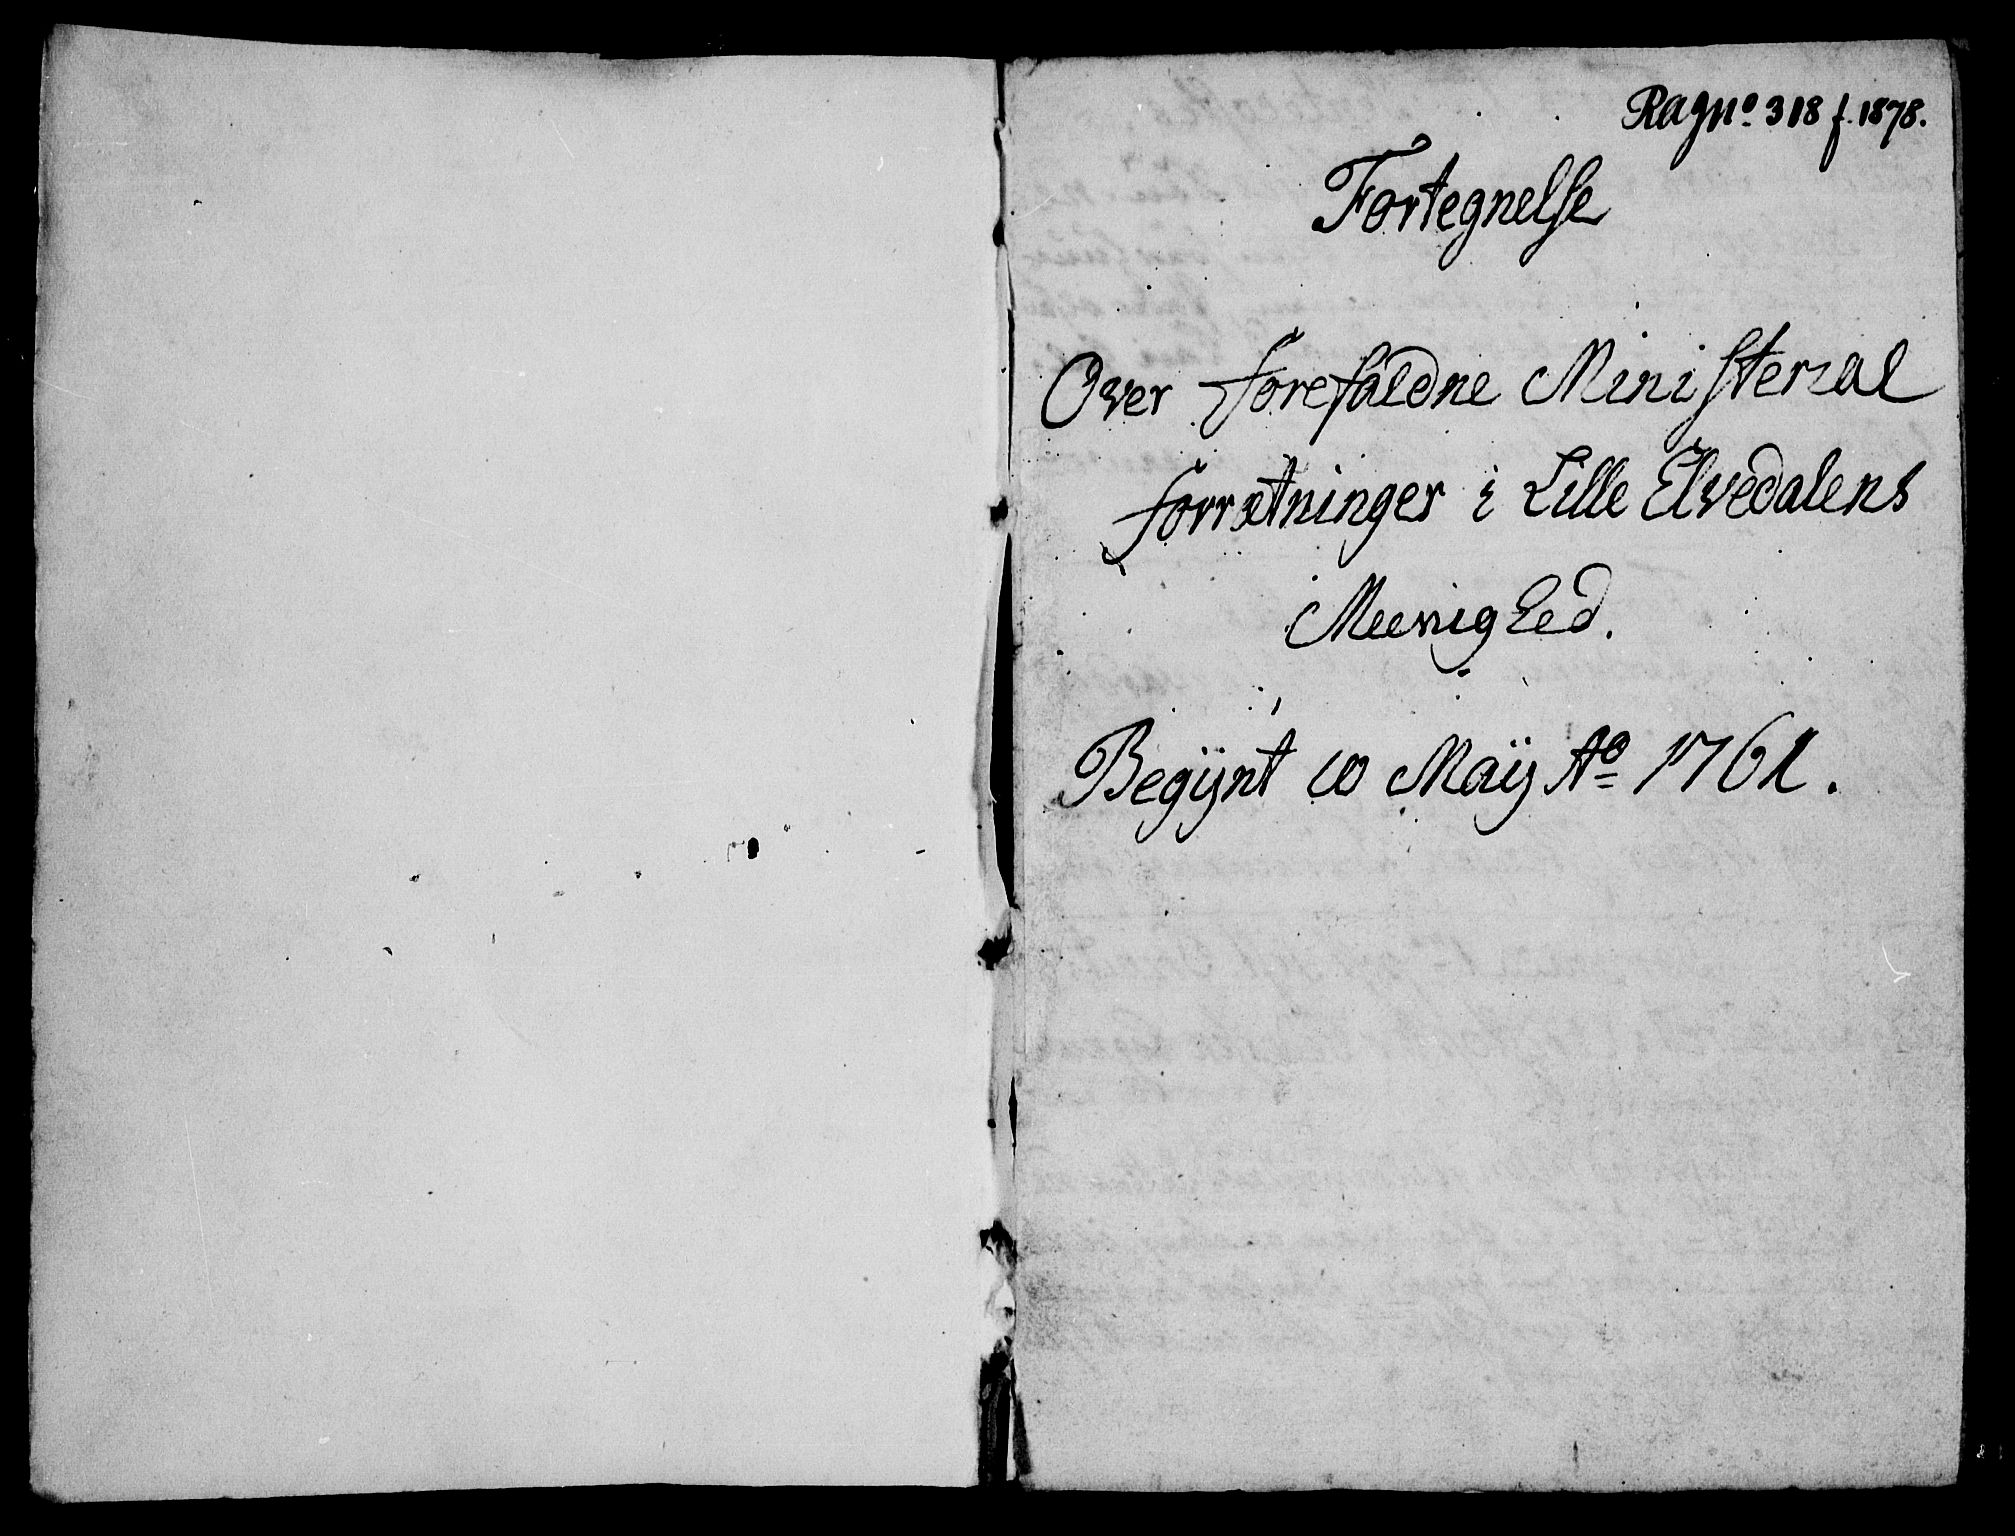 Ragnº 318 f. 1878.
Fortegnelse
Over forefaldne Ministerial
forrætninger i Lille Elvedalens
Meenighed.
Begÿnt 10 Maÿ Aº 1761.